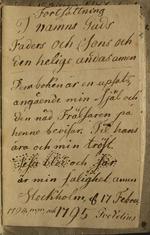 Fortsättning
I namns Guds
Faders och Sons och
den helige andas amen
Den boken är en upsats
angående min Själ och
den nåd Frälsaren på
henne bevisar. Til hans
ära och min tröst.
Jesu blod och
är min salighet amen
Stockholm d 17 Febru
1795